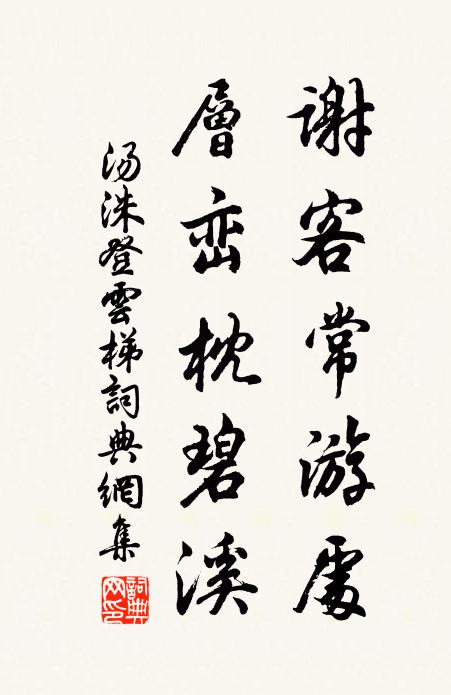 謝客常游處
層峦枕碧溪
汤洙登雲梯詞典網集
詞典网印